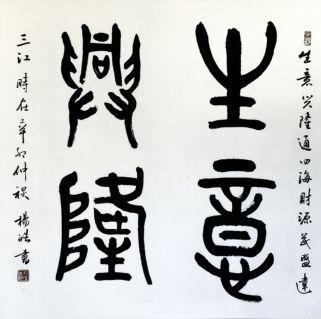 生意
興隆
生意兴隆通四海財源茂盛達
三江時在辛卯仲秋楊浩書